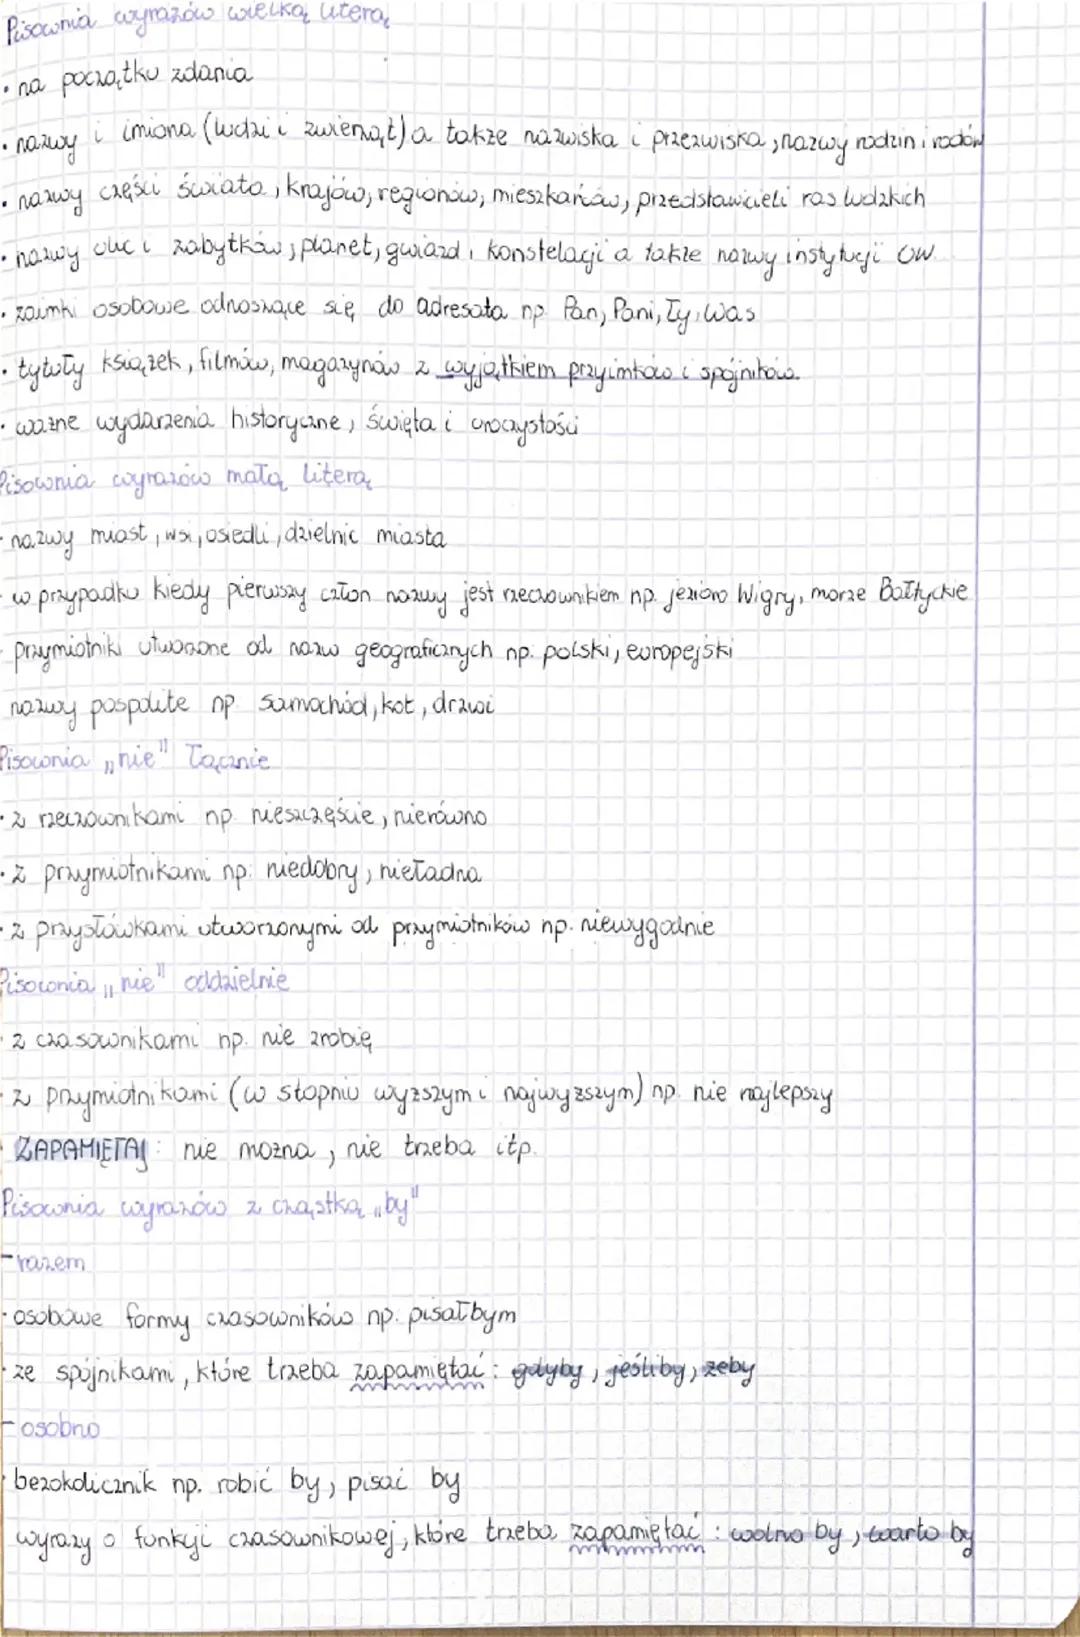 Pisownia wyrazów wielką literą
• na początku zdania
• nazwy i imiona (ludzi i zwierząt) a także nazwiska i przezwiska, nazwy rodzin i rodów
• nazwy części świata, krajów, regionów, mieszkańców, przedstawicieli ras ludzkich
• nazwy ulic i zabytków, planet, gwiazd, konstelacji a także nazwy instytucji
• zaimki osobowe odnoszące się do adresata np. Pan, Pani, Ty, Was
• tytuły książek, filmów, magazynów z wyjątkiem przyimków i spójników.
• ważne wydarzenia historyczne, święta i uroczystości
Pisownia wyrazów małą literą
• nazwy miast, wsi, osiedli, dzielnic miasta
• w przypadku kiedy pierwszy człon nazwy jest rzeczownikiem np. jezioro Wigry, morze Bałtyckie
przymiotniki utworzone od nazw geograficznych np. polski, europejski
nazwy pospolite np. samochód, kot, drzwi
Pisownia „nie" łącznie
• z rzeczownikami np. nieszczęście, nierówno
• z przymiotnikami np. niedobry, nieładna
• z przysłówkami utworzonymi od przymiotników np. niewygodnie
Pisownia „nie" oddzielnie
• z czasownikami np. nie zrobię
• z przymiotnikami (w stopniu wyższym i najwyższym) np. nie najlepszy
ZAPAMIĘTAJ: nie można, nie trzeba itp.
Pisownia wyrazów z cząstką „by"
- razem
• osobowe formy czasowników np. pisałbym
• ze spójnikami, które trzeba zapamiętać: gdyby, jeśliby, żeby
- osobno
• bezokolicznik np. robić by, pisać by
wyrazy o funkcji czasownikowej, które trzeba zapamiętać: wolno by, warto by